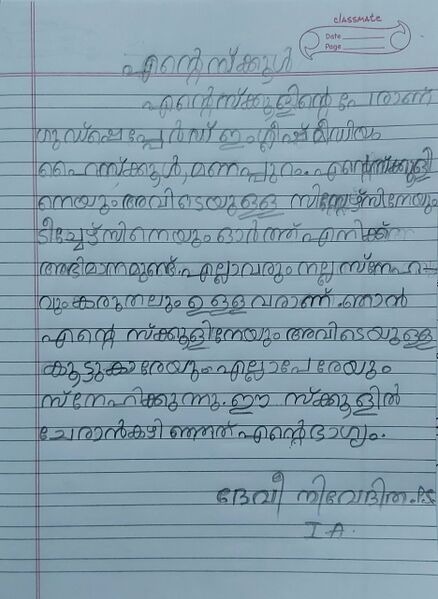 classmate
Date
Page
എന്റെ സ്ക്കൂൾ
എന്റെ സ്ക്കൂളിന്റെ പേരാണ്
ഗുഡ്ഷെപ്പേർഡ് ഇംഗ്ലീഷ് മീഡിയം
ഹൈസ്ക്കൂൾ, മണപ്പുറം. എന്റെ സ്ക്കൂളി
നെയും അവിടെയുള്ള
ടീച്ചേഴ്സിനെയും ഓർത്ത് എനിക്ക്
അഭിമാനമുണ്ട്. എല്ലാവരും നല്ല സ്നേഹ
വും കരുതലും ഉള്ളവരാണ്. ഞാൻ
എന്റെ സ്ക്കൂളിനേയും അവിടെയുള്ള
കൂട്ടുകാരേയും എല്ലാപേരേയും
സ്നേഹിക്കുന്നു. ഈ സ്ക്കൂളിൽ
ചേരാൻകഴിഞ്ഞത് എന്റെ ഭാഗ്യം.
ദേവീ നിവേദിത. P.S
I A.